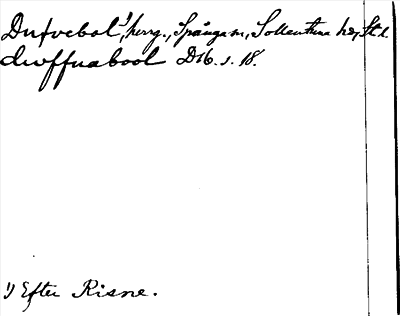 Dufvebol¹⁾, herrg., Spånga sn, Sollentuna hd, St. l.
diwffnabool D16. s. 18.
¹⁾ Efter Risne.